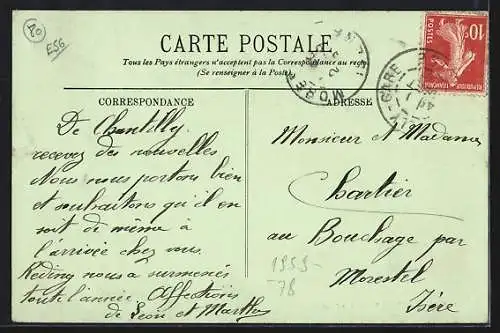 80
E56
CARTE POSTALE
Tous les Pays étrangers n'acceptent pas la Correspondance au recto
(Se renseigner à la Poste)
CORRESPONDANCE
ADRESSE
10c
POSTES
REPUBLIQUE FRANÇAISE
GARE
De Chantilly
recevez des nouvelles
Nous nous portons bien
et souhaitons qu'il en
soit de même à
l'arrivée chez vous.
nous a surmenés
toute l'année. Affections
de Léon et Marthe
Monsieur et Madame
Chartier
au Bouchage par
Morestel
Isère
1959-
78